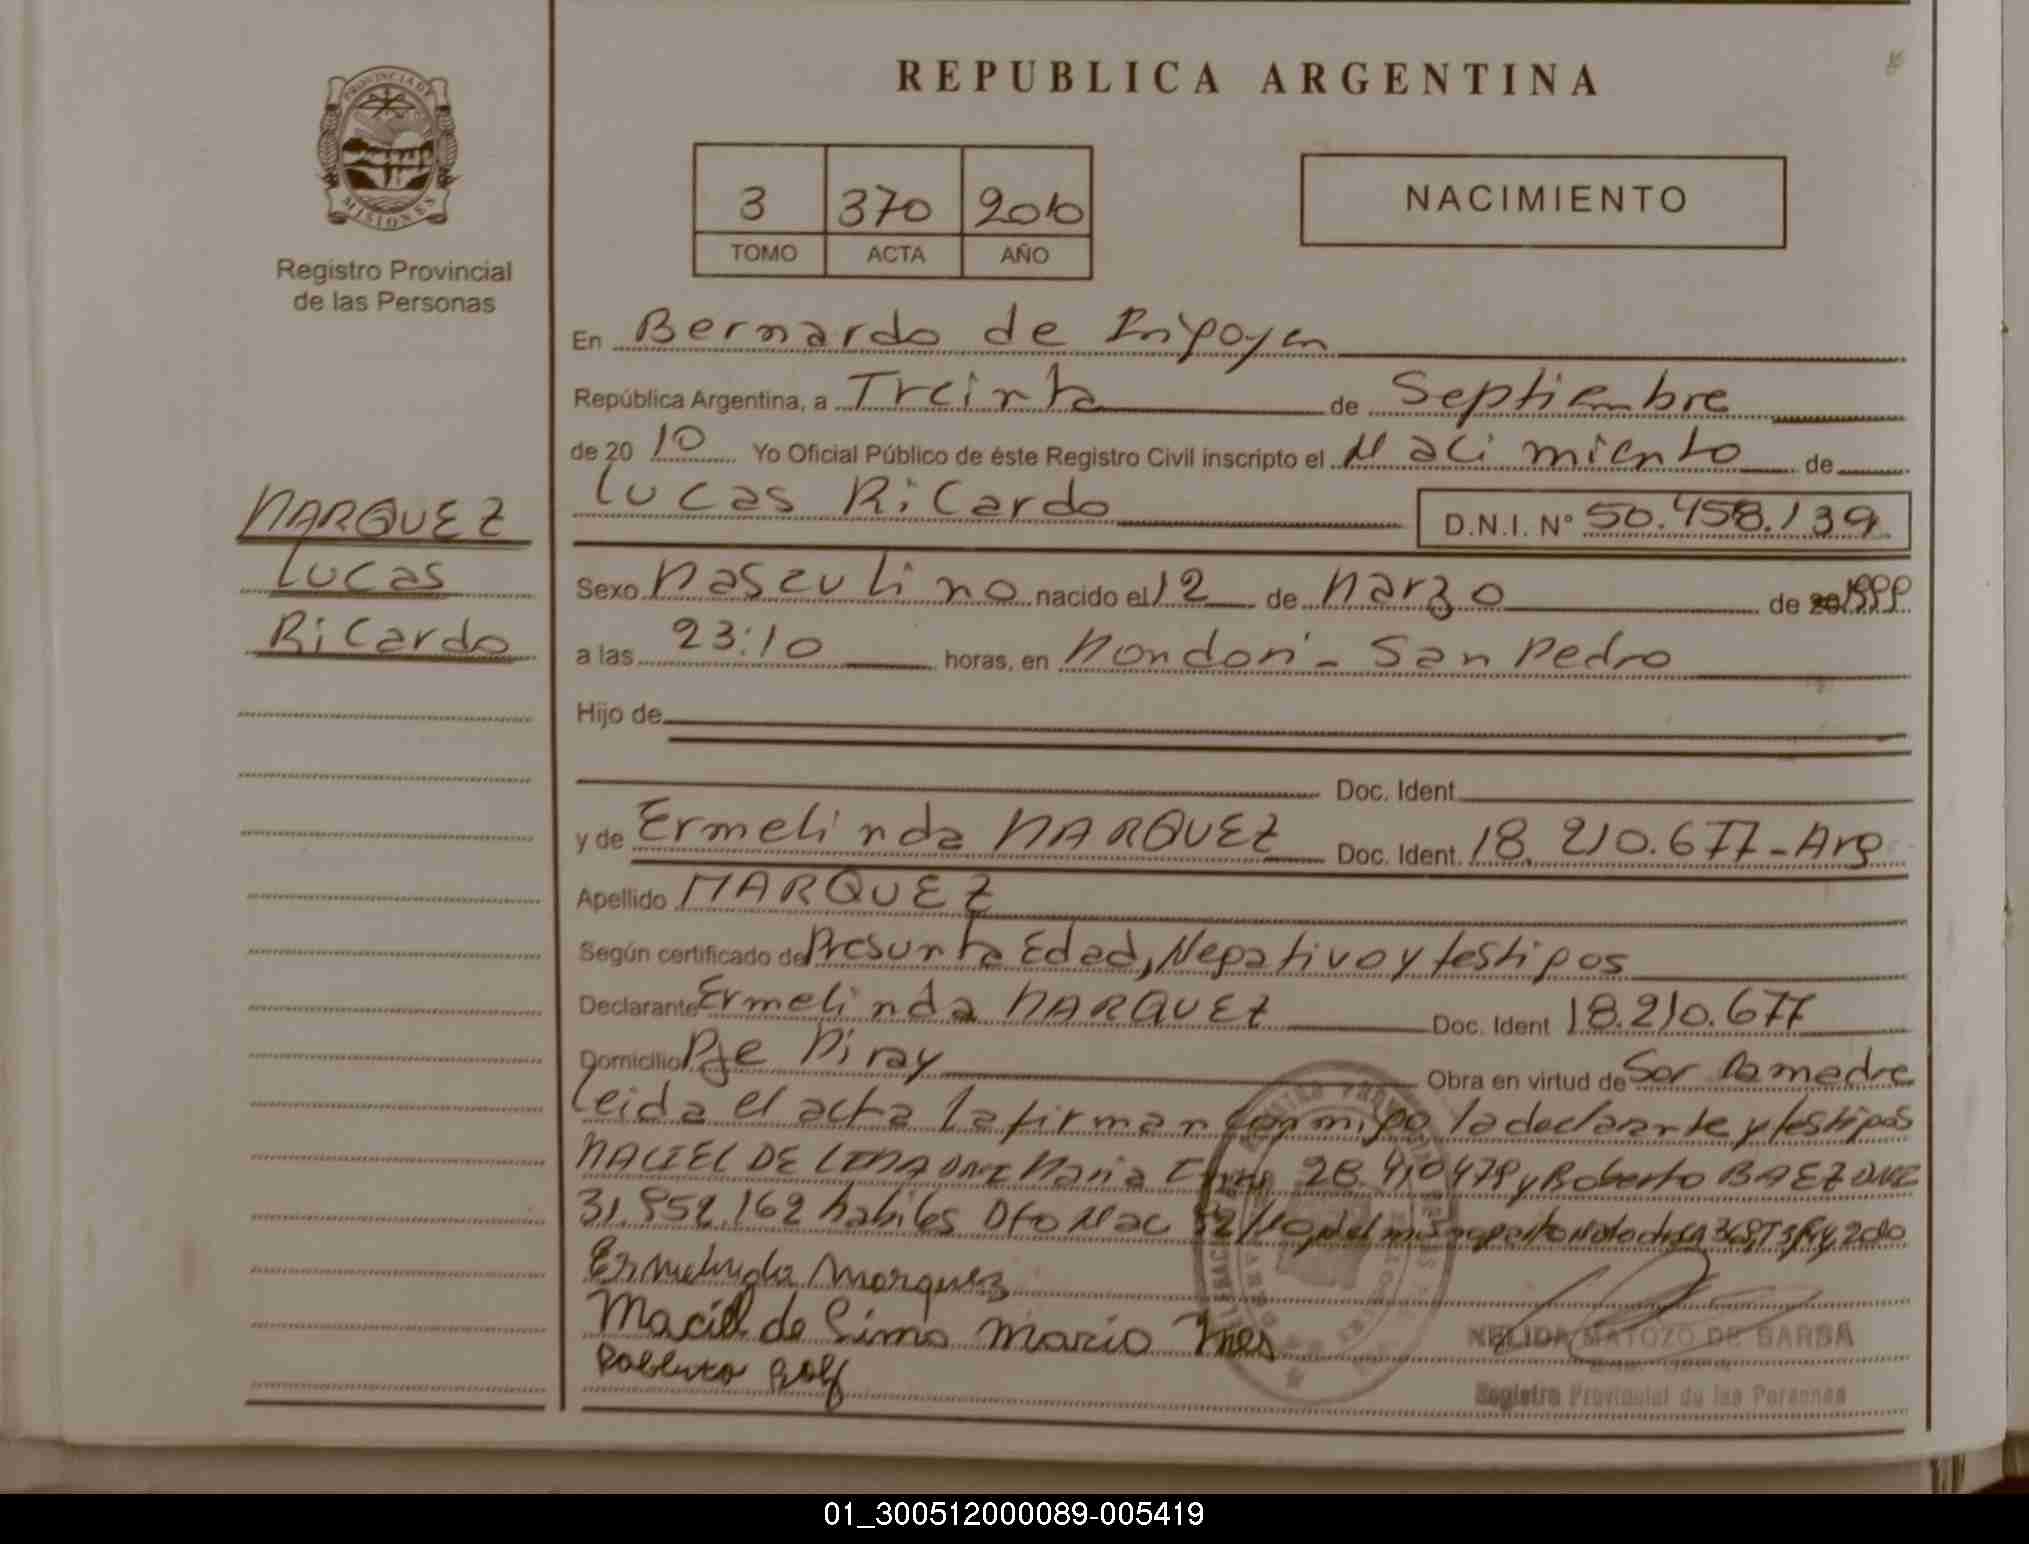 REPUBLICA ARGENTINA
PROVINCIA DE
MISIONES
Registro Provincial
de las Personas
3 370 2010
TOMO ACTA AÑO
NACIMIENTO
En Bernardo de Irigoyen
República Argentina, a Treinta de Septiembre
de 20 10 Yo Oficial Público de éste Registro Civil inscripto el Nacimiento de
Lucas Ricardo D.N.I. N° 50.458.139
MARQUEZ
Lucas
Ricardo
Sexo Masculino nacido el 12 de Marzo de 1999
a las 23:10 horas, en Mondori - San Pedro
Hijo de
Doc. Ident.
y de Ermelinda MARQUEZ Doc. Ident. 18.210.677-Arg
Apellido MARQUEZ
Según certificado de Presunta Edad, Negativo y testigos
Declarante Ermelinda MARQUEZ Doc. Ident 18.210.677
Domicilio Pje Piray Obra en virtud de Ser la madre
Leida el acta la firman conmigo la declarante y testigos
MACIEL DE LIMA DNI Maria 28.410479 y Roberto BAEZ DNI
31.952.162 habiles Dto Nac
Ermelinda Marquez
Maciel de Lima Maria Ines
Roberto
NELIDA MATOZO DE BARBA
Registro Provincial de las Personas
01_300512000089-005419